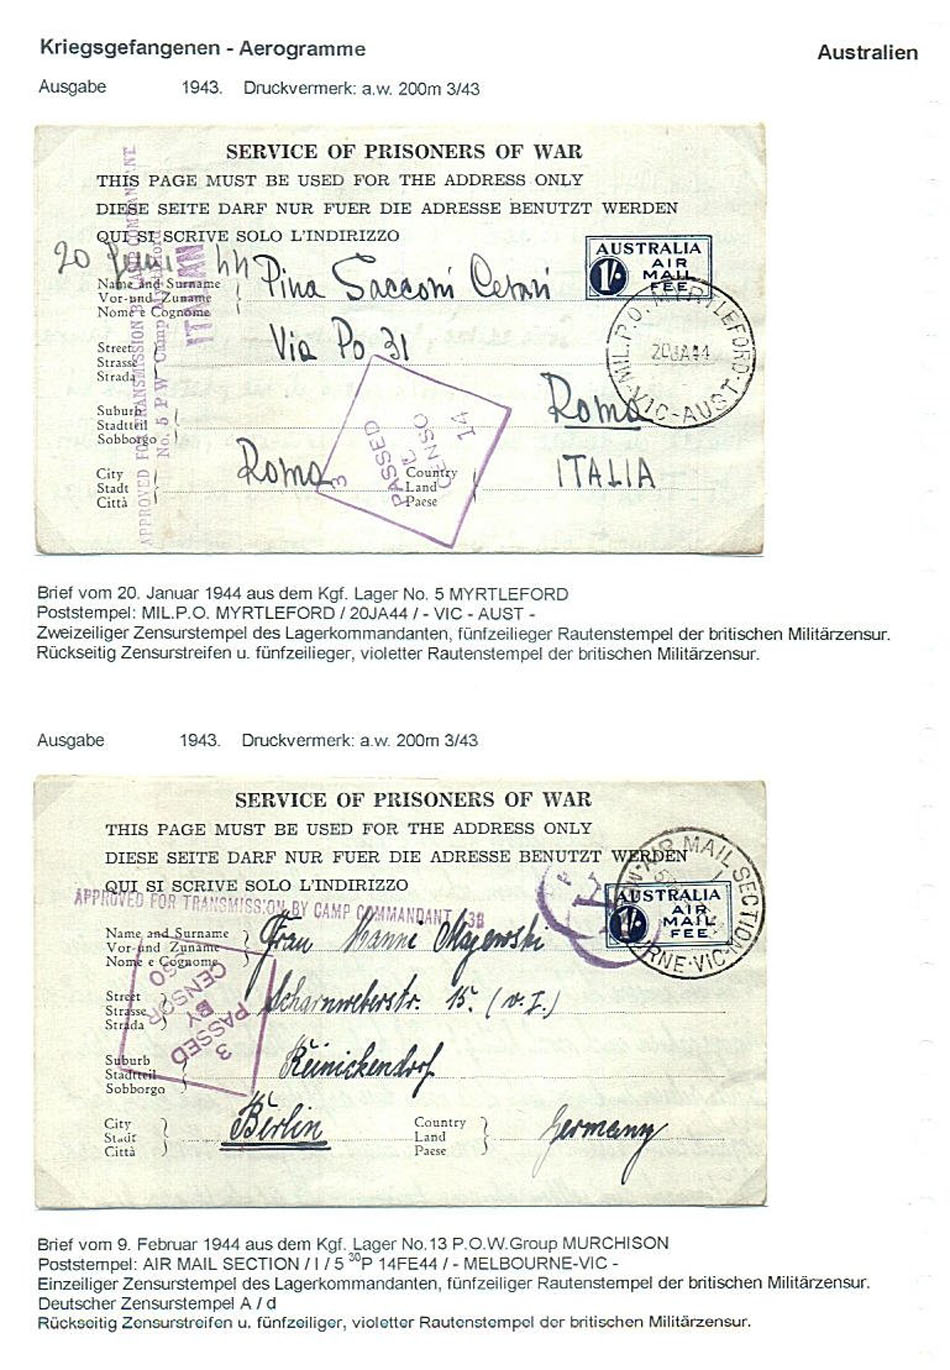 Kriegsgefangenen - Aerogramme
Australien
Ausgabe 1943. Druckvermerk: a.w. 200m 3/43
SERVICE OF PRISONERS OF WAR
THIS PAGE MUST BE USED FOR THE ADDRESS ONLY
DIESE SEITE DARF NUR FUER DIE ADRESSE BENUTZT WERDEN
QUI SI SCRIVE SOLO L'INDIRIZZO
APPROVED FOR TRANSMISSION BY CAMP COMMANDANT
No. 5 P W Camp Myrtleford
ITALIAN
AUSTRALIA
1/- AIR
MAIL
FEE
MIL.P.O. MYRTLEFORD
20JA44
VIC-AUST
20 44
Name and Surname
Vor-und Zuname
Nome e Cognome
Pina Sacconi
Street
Strasse
Strada
Via Po 31
Suburb
Stadtteil
Sobborgo
Roma
City
Stadt
Città
Roma
Country
Land
Paese
ITALIA
3
PASSED
CENSO
14
Brief vom 20. Januar 1944 aus dem Kgf. Lager No. 5 MYRTLEFORD
Poststempel: MIL.P.O. MYRTLEFORD / 20JA44 / - VIC - AUST -
Zweizeiliger Zensurstempel des Lagerkommandanten, fünfzeilieger Rautenstempel der britischen Militärzensur.
Rückseitig Zensurstreifen u. fünfzeilieger, violetter Rautenstempel der britischen Militärzensur.
Ausgabe 1943. Druckvermerk: a.w. 200m 3/43
SERVICE OF PRISONERS OF WAR
THIS PAGE MUST BE USED FOR THE ADDRESS ONLY
DIESE SEITE DARF NUR FUER DIE ADRESSE BENUTZT WERDEN
QUI SI SCRIVE SOLO L'INDIRIZZO
APPROVED FOR TRANSMISSION BY CAMP COMMANDANT 13B
AIR MAIL SECTION
VIC
AUSTRALIA
1/- AIR
MAIL
FEE
Name and Surname
Vor-und Zuname
Nome e Cognome
Frau Hanni Majewski
Street
Strasse
Strada
Scharnweberstr. 15. (v. I.)
Suburb
Stadtteil
Sobborgo
Reinickendorf
City
Stadt
Città
Berlin
Country
Land
Paese
Germany
3
PASSED
BY
CENSOR
Brief vom 9. Februar 1944 aus dem Kgf. Lager No.13 P.O.W.Group MURCHISON
Poststempel: AIR MAIL SECTION / I / 5 30P 14FE44 / - MELBOURNE-VIC -
Einzeiliger Zensurstempel des Lagerkommandanten, fünfzeiliger Rautenstempel der britischen Militärzensur.
Deutscher Zensurstempel A / d
Rückseitig Zensurstreifen u. fünfzeiliger, violetter Rautenstempel der britischen Militärzensur.